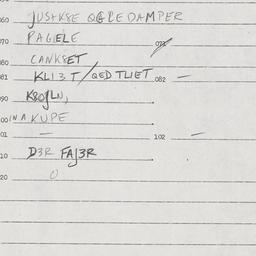 060 JUSTKSE QGLE DAMPER
070 PAGIELE 071
080 CANKSET
081 KLI3T / QED TLIET 082 —
090 K80JLN,
00 IN A KUPE
01 — 102 —
10 D3R FAJ3R
20 0